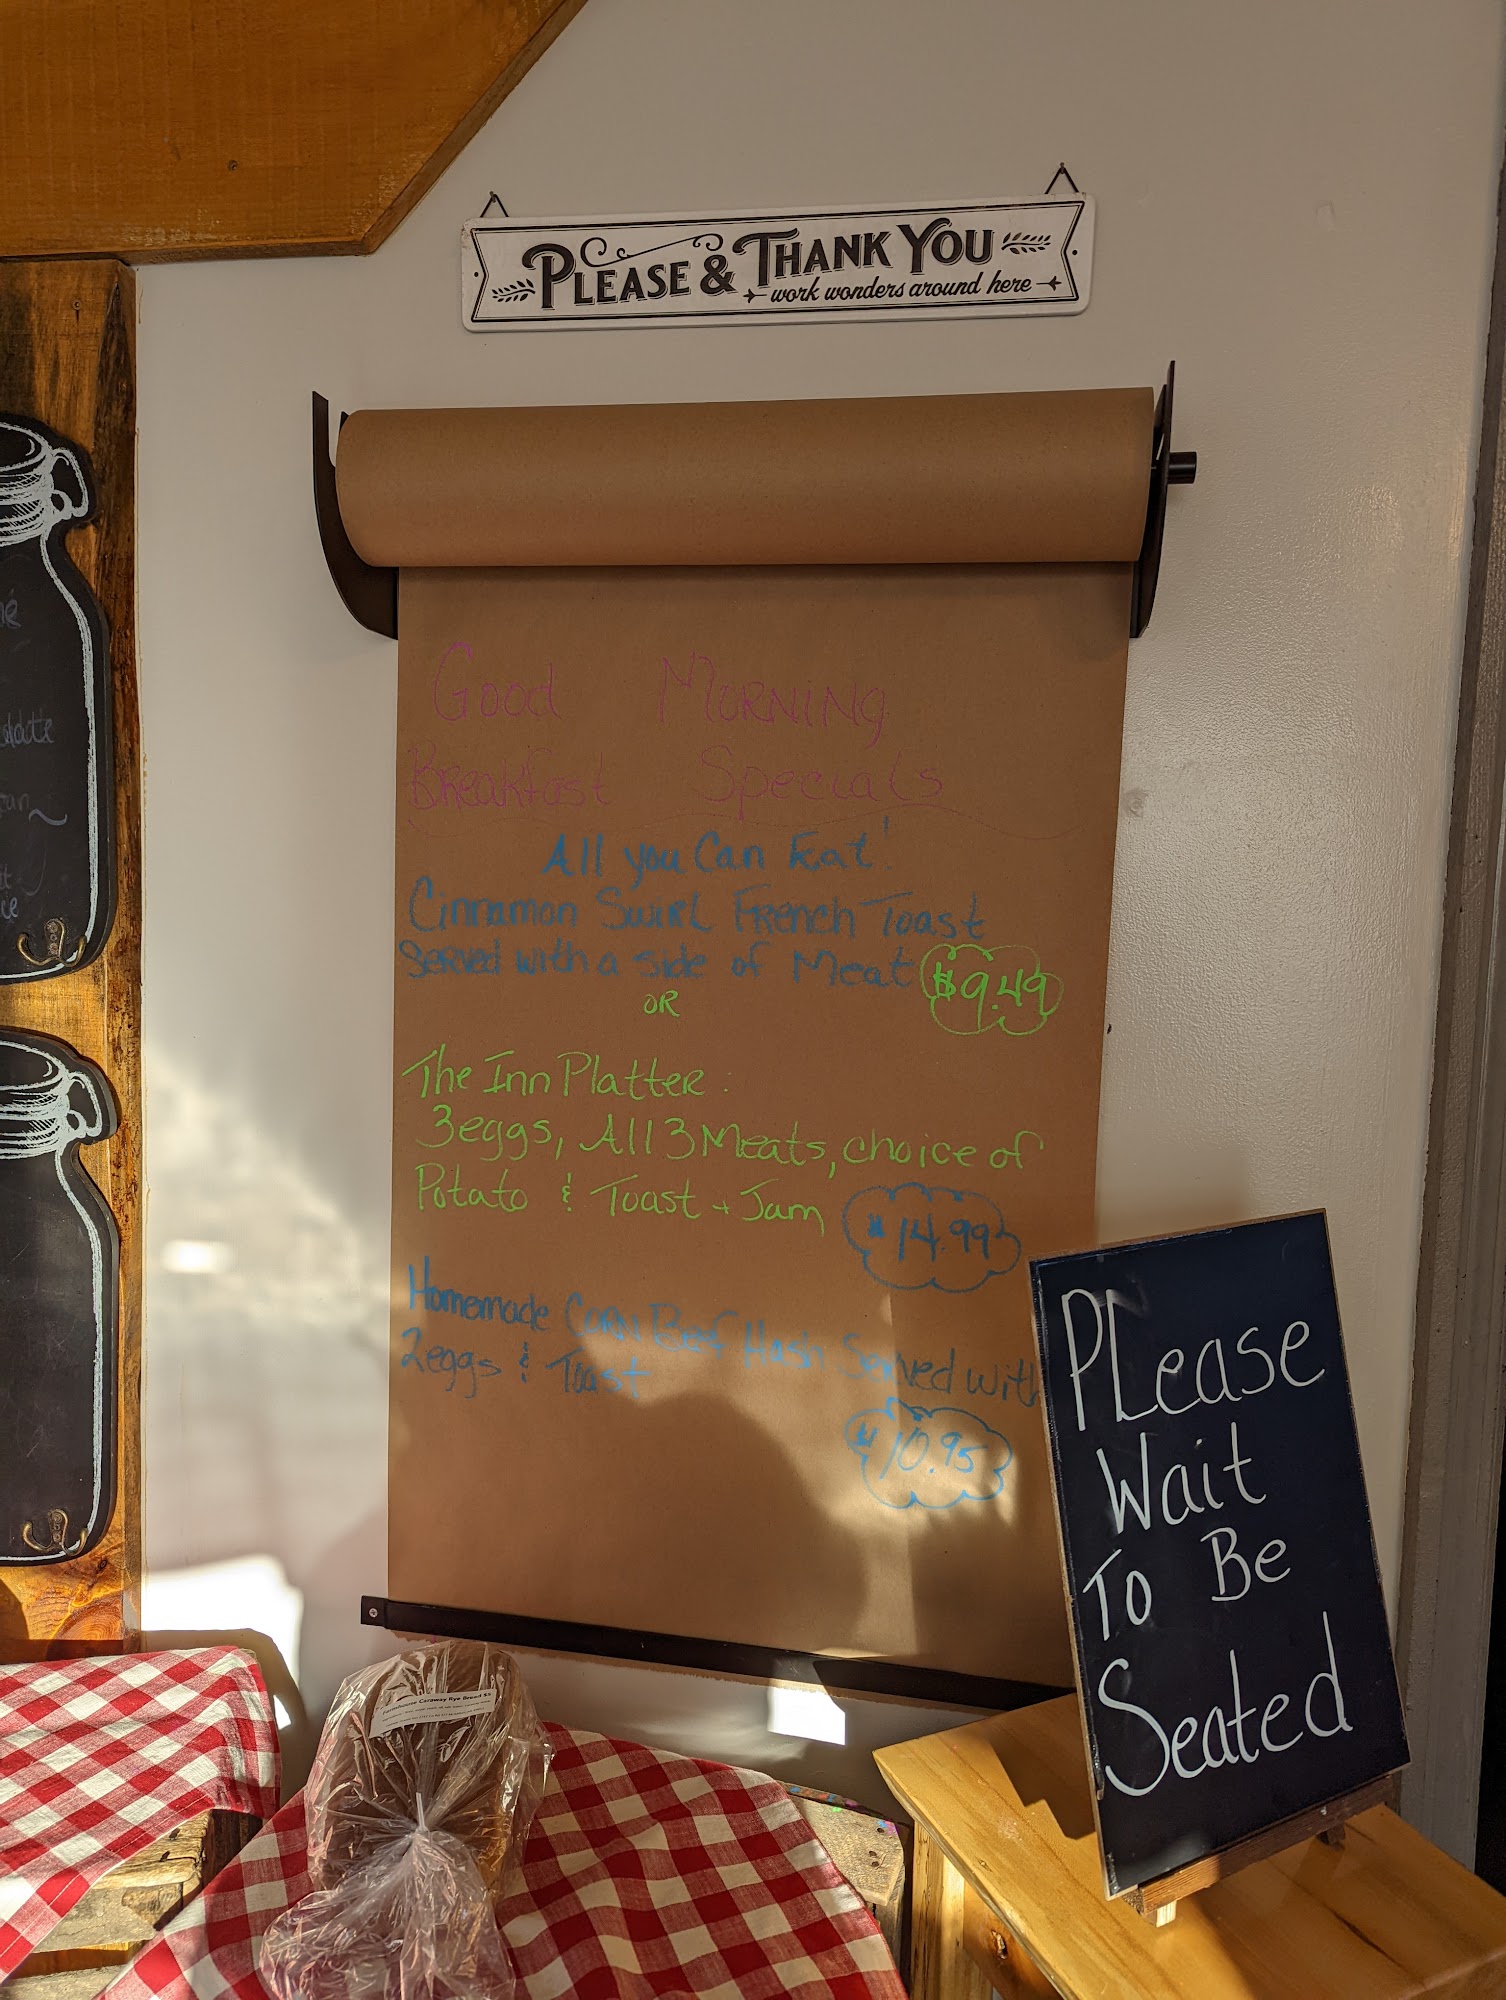 PLEASE & THANK YOU
work wonders around here
Good MORNING
Breakfast Specials
All you Can Eat!
Cinnamon Swirl French Toast
Served with a side of Meat $9.49
OR
The Inn Platter.
3eggs, All 3 Meats, choice of
Potato & Toast + Jam
$14.99
Homemade Corn Beef Hash Served with
2eggs & Toast
$10.95
PLease
Wait
To Be
Seated
Farmhouse Caraway Rye Bread